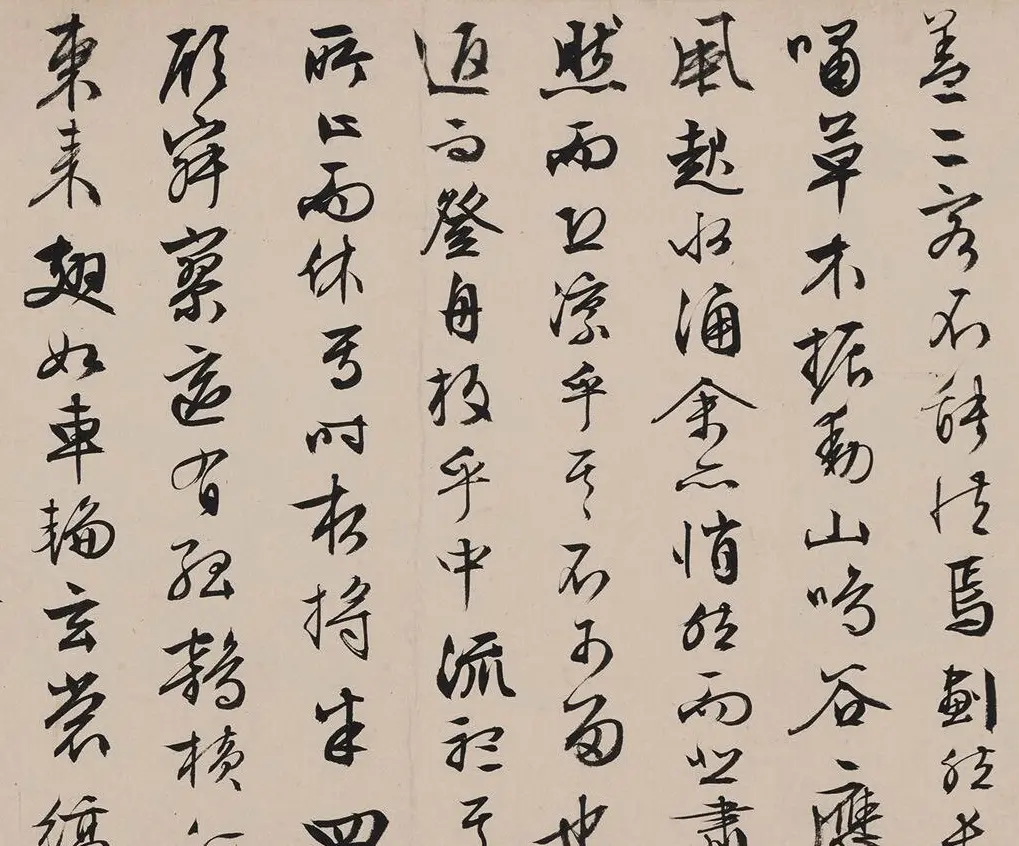 蓋二客不能從焉劃然長
嘯草木振動山鳴谷應
風起水涌余亦悄然而悲肅
然而恐凜乎其不可留也
返而登舟放乎中流聽其
所止而休焉時夜將半四
顧寂寥適有孤鶴橫
東來翅如車輪玄裳縞